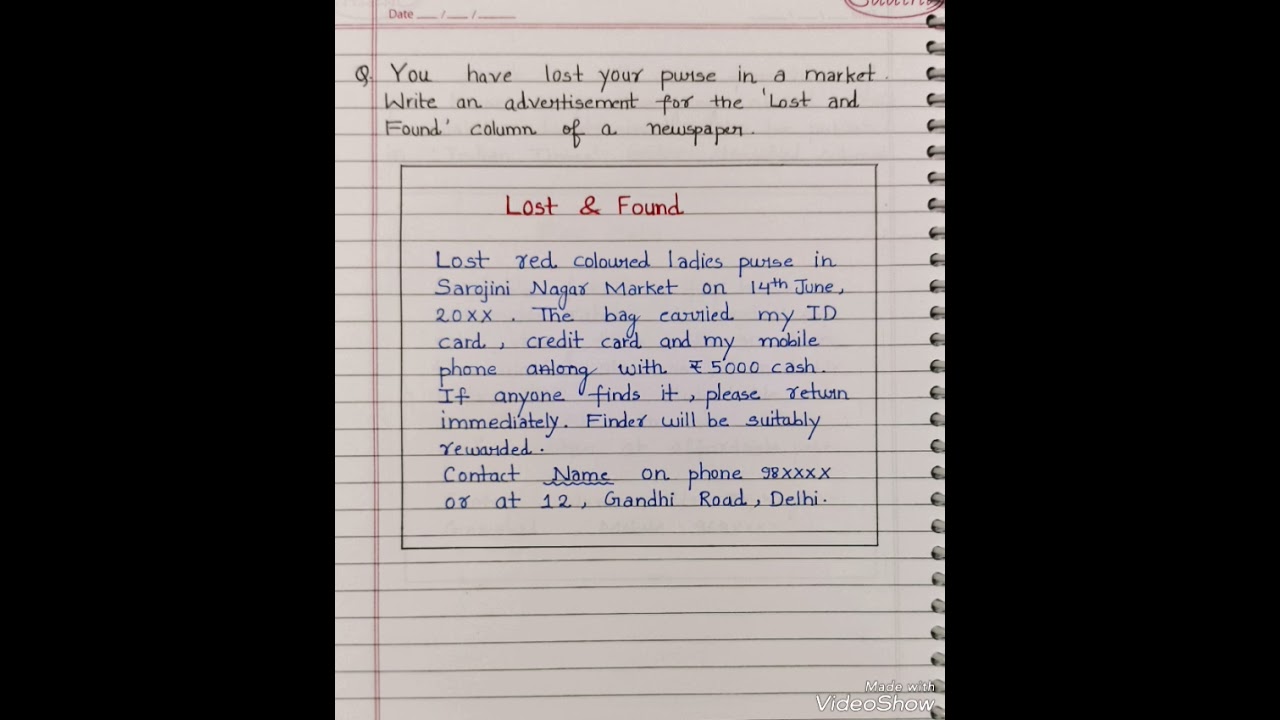 Date __/__/____
Q. You have lost your purse in a market.
Write an advertisement for the 'Lost and
Found' column of a newspaper.
Lost & Found
Lost red coloured ladies purse in
Sarojini Nagar Market on 14th June,
20XX. The bag carried my ID
card, credit card and my mobile
phone along with ₹5000 cash.
If anyone finds it, please return
immediately. Finder will be suitably
rewarded.
Contact Name on phone 98XXXX
or at 12, Gandhi Road, Delhi.
Made with
VideoShow